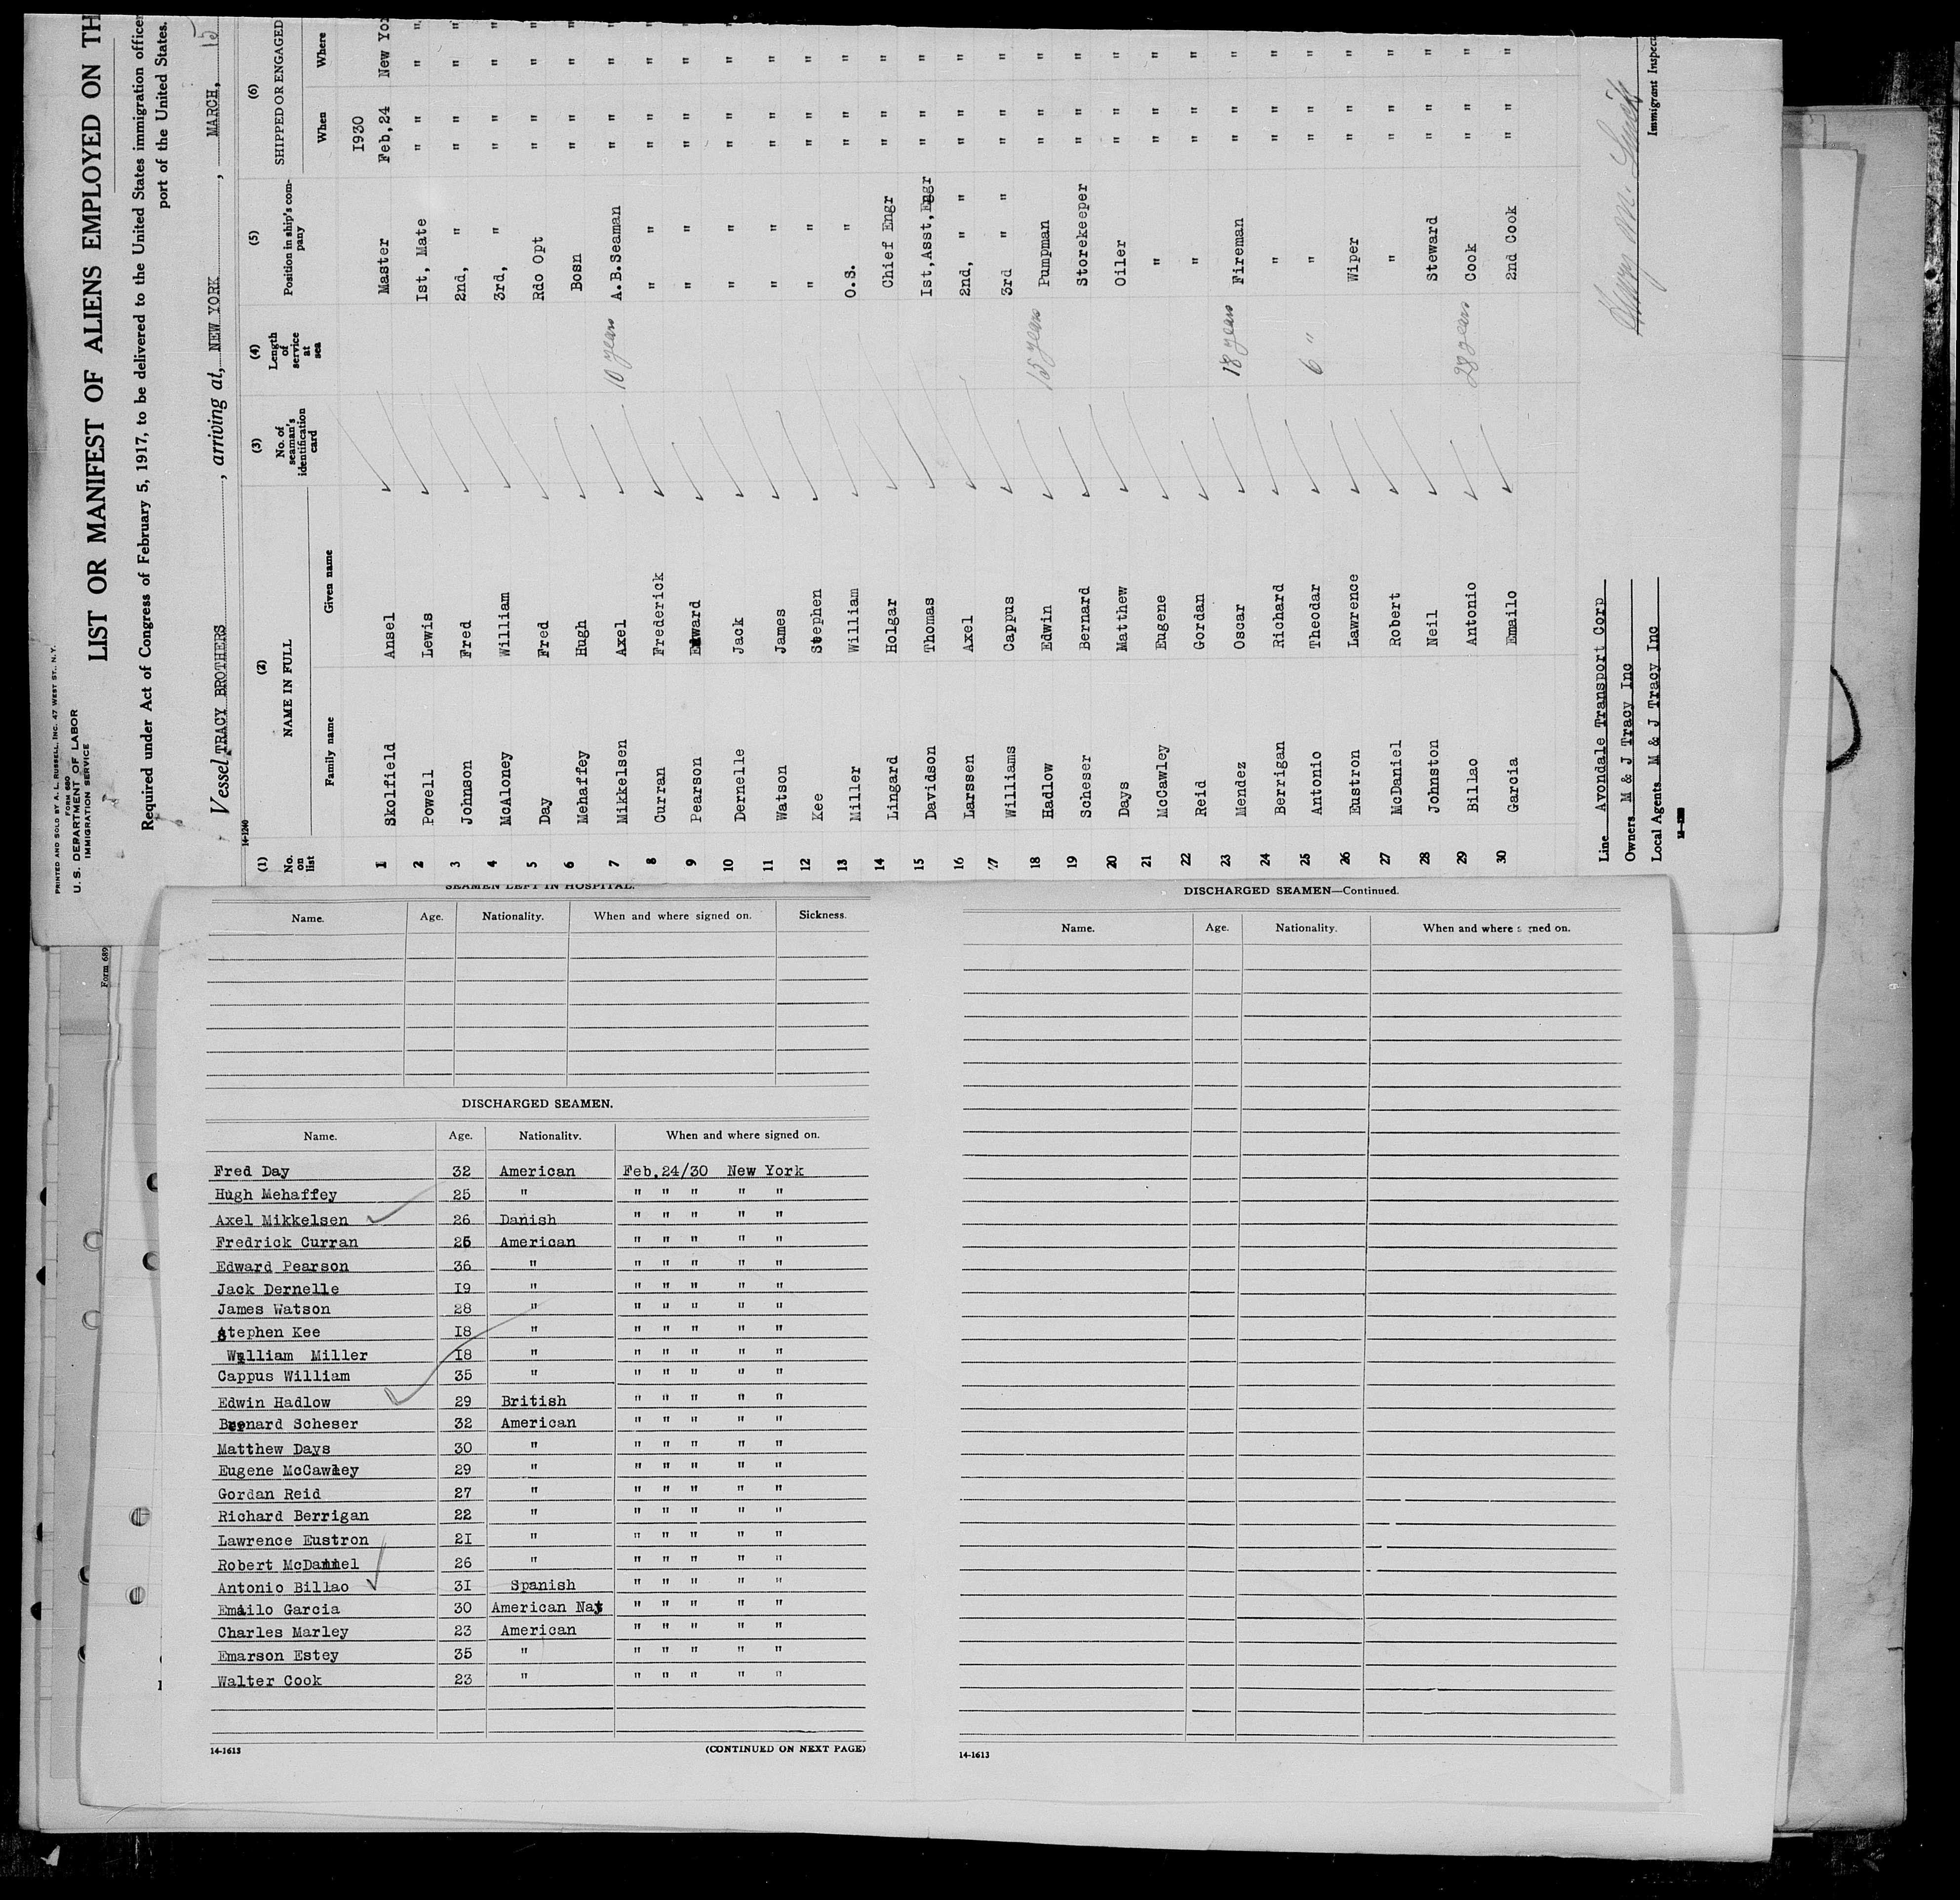 PRINTED AND SOLD BY A. L. RUSSELL, INC. 47 WEST ST., N.Y.
FORM 680
U. S. DEPARTMENT OF LABOR
IMMIGRATION SERVICE
LIST OR MANIFEST OF ALIENS EMPLOYED ON TH
Required under Act of Congress of February 5, 1917, to be delivered to the United States immigration officer
port of the United States.
Vessel TRACY BROTHERS, arriving at, NEW YORK, MARCH, 15
14-1240
(1) (2) (3) (4) (5) (6)
No. on list NAME IN FULL No. of seaman's identification card Length of service at sea Position in ship's company SHIPPED OR ENGAGED
Family name Given name When Where
1930
1 Skolfield Ansel Master Feb,24 New Yo
2 Powell Lewis Ist, Mate " " " "
3 Johnson Fred 2nd, " " " " "
4 McAloney William 3rd, " " " " "
5 Day Fred Rdo Opt " " " "
6 Mehaffey Hugh Bosn " " " "
7 Mikkelsen Axel 10 years A.B.Seaman " " " "
8 Curran Frederick " " " " " "
9 Pearson Edward " " " " " "
10 Dernelle Jack " " " " " "
11 Watson James " " " " " "
12 Kee Stephen " " " " " "
13 Miller William O.S. " " " " "
14 Lingard Holgar Chief Engr " " " "
15 Davidson Thomas Ist,Asst,Engr " " " "
16 Larssen Axel 2nd, " " " " " "
17 Williams Cappus 3rd " " " " " "
18 Hadlow Edwin 15 years Pumpman " " " "
19 Scheser Bernard Storekeeper " " " "
20 Days Matthew Oiler " " " "
21 McCawley Eugene " " " " "
22 Reid Gordan " " " " "
23 Mendez Oscar 18 years Fireman " " " "
24 Berrigan Richard " " " " "
25 Antonio Theodar 6 " " " " " "
26 Eustron Lawrence Wiper " " " "
27 McDaniel Robert " " " " "
28 Johnston Neil Steward " " " "
29 Billao Antonio 28 years Cook " " " "
30 Garcia Emailo 2nd Cook " " " "
Line Avondale Transport Corp
Owners M & J Tracy Inc
Local Agents M & J Tracy Inc
Immigrant Inspec
Form 689
SEAMEN LEFT IN HOSPITAL.
Name. Age. Nationality. When and where signed on. Sickness.
DISCHARGED SEAMEN.
Name. Age. Nationality. When and where signed on.
Fred Day 32 American Feb.24/30 New York
Hugh Mehaffey 25 " " " " " "
Axel Mikkelsen 26 Danish " " " " "
Fredrick Curran 26 American " " " " "
Edward Pearson 36 " " " " " "
Jack Dernelle I9 " " " " " "
James Watson 28 " " " " " "
Stephen Kee I8 " " " " " "
William Miller I8 " " " " " "
Cappus William 35 " " " " " "
Edwin Hadlow 29 British " " " " "
Bernard Scheser 32 American " " " " "
Matthew Days 30 " " " " " "
Eugene McCawley 29 " " " " " "
Gordan Reid 27 " " " " " "
Richard Berrigan 22 " " " " " "
Lawrence Eustron 2I " " " " " "
Robert McDaniel 26 " " " " " "
Antonio Billao 3I Spanish " " " " "
Emailo Garcia 30 American Nat " " " " "
Charles Marley 23 American " " " " "
Emarson Estey 35 " " " " " "
Walter Cook 23 " " " " " "
14-1613 (CONTINUED ON NEXT PAGE)
DISCHARGED SEAMEN—Continued.
Name. Age. Nationality. When and where signed on.
14-1613